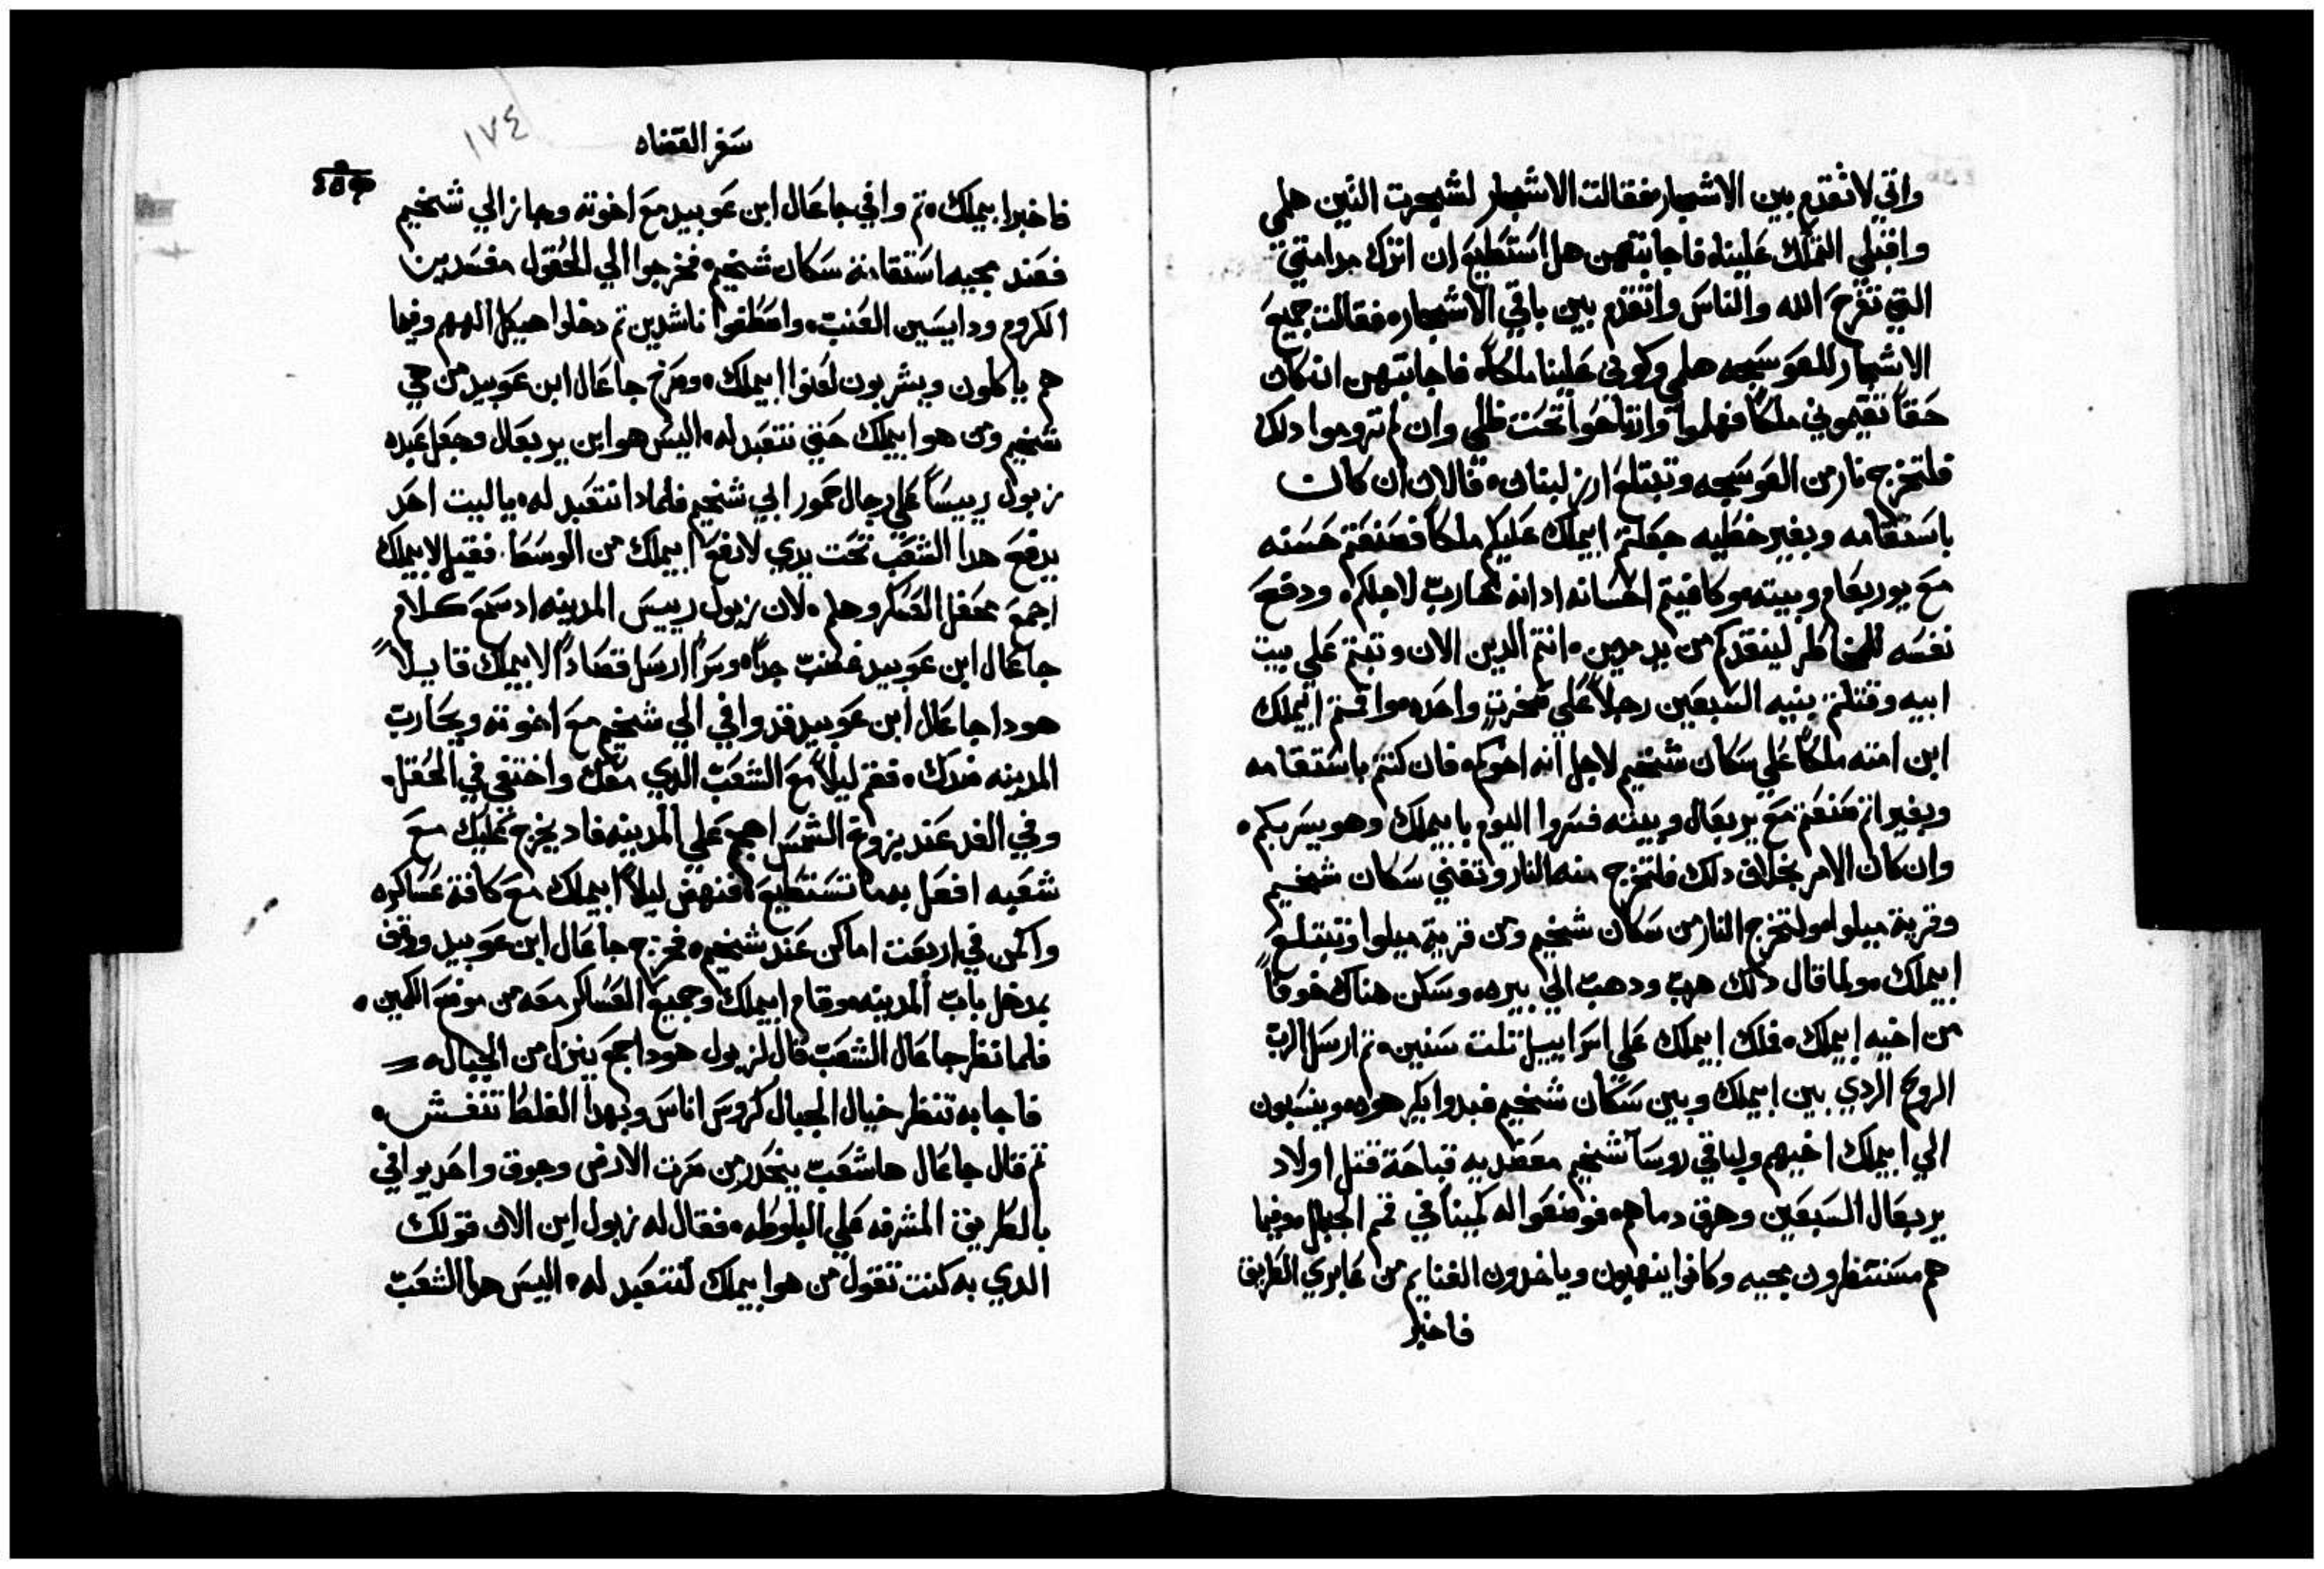 واتي لاتقدم بين الاشجار فقالت الاشجار لشجرت التين هلمي
واقبلي التملك علينا فاجابتهن هل استطيع ان اترك مدامتي
التي تفرح الله والناس واتقدم بين باقي الاشجار فقالت جميع
الاشجار للعوسجه هلمي وكوني علينا ملكاً فاجابتهن ان كان
حقاً تقيموني ملكاً فهلموا وارتاحوا تحت ظلي وان لم تروموا دلك
فلتخرج نار من العوسجه وتبتلع ارز لبنان قالان ان كانت
باستقامه وبغير خطيه جعلتم ابيملك عليكم ملكاً فصنعتم حسنه
مع يوربعام وبيته وكافيتم احسانه ادانه حارب لاجلكم ودفع
نفسه للمخاطر لينقدكم من يد مدين انتم الدين الان وتبتم علي بيت
ابيه وقتلتم بنيه السبعين رجلاً علي صخرت واحده واقمتم ابيملك
ابن امته ملكاً علي سكان شخيم لاجل انه اخوكم فان كنتم باستقامه
وبغير اثم صنعتم مع يربعال وبيته فسروا اليوم بابيملك وهو يسر بكم
وان كان الامر بخلاف دلك فلتخرج منه النار وتفني سكان شخيم
وقرية ميلوا ولتخرج النار من سكان شخيم ومن قرية ميلوا وتبتلع
ابيملك ولما قال دلك هرب ودهب الي بيره وسكن هناك خوفاً
من اخيه ابيملك فملك ابيملك علي اسراييل تلت سنين تم ارسل الرب
الروح الردي بين ابيملك وبين سكان شخيم فبدوا يكرهوه وينسبون
الي ابيملك اخيهم ولباقي روسا شخيم معضديه قباحة قتل اولاد
يربعال السبعين وهرق دماهم فوضعوا له كميناً في قمم الجبل وفيما
هم مستنظرون مجيه وكانوا ينهبون وياخدون الغنايم من عابري الطريق
فاخبر
سفر القضاه
١٧٤
فاخبر ابيملك تم وافي جاعال ابن عوبيد مع اخوته وجاز الي شخيم
فعند مجيه استقامة سكان شخيم فخرجوا الي الحقول مفسدين
الكروم ودايسين العنب واصطفوا ناشدين تم دخلوا هيكل الههم وفيما
هم ياكلون ويشربون لعنوا ابيملك وصرخ جاعال ابن عوبيد من هي
شخيم ومن هو ابيملك حتي نتعبد له اليس هو ابن يربعال وجعل عبده
زبول رييساً علي رجال حمور ابي شخيم فلمادا نتعبد له ياليت احد
يدفع هدا الشعب تحت يدي لارفع ابيملك من الوسط فقيل لابيملك
اجمع محفل العسكر وهلم لان زبول رييس المدينه اد سمع كلام
جاعال ابن عوبيد غضب جداً وسراً ارسل قصاداً لابيملك قايلاً
هودا جاعال ابن عوبيد قد وافي الي شخيم مع اخوته ويحارب
المدينه ضدك فقم ليلاً مع الشعب الدي معك واختفي في الحقل
وفي الغد عند بزوغ الشمس اهجم علي المدينه فاد يخرج عليك مع
شعبه افعل به ما تستطيع فنهض ليلاً ابيملك مع كافة عساكره
واكمن في اربعت اماكن عند شخيم فخرج جاعال ابن عوبيد ووقف
بمدخل باب المدينه وقام ابيملك وجميع العساكر معه من موضع الكمين
فلما نظر جاعال الشعب قال لزبول هودا جمع ينزل من الجبال
فاجابه تنظر خيال الجبال كروس اناس وبهدا الغلط تنغش
تم قال جاعال ها شعب ينحدر من سرت الارض وجوق واحد يوافي
بالطريق المشرفه علي البلوطه فقال له زبول اين الان قولك
الدي به كنت تقول من هو ابيملك لنتعبد له اليس هدا الشعب